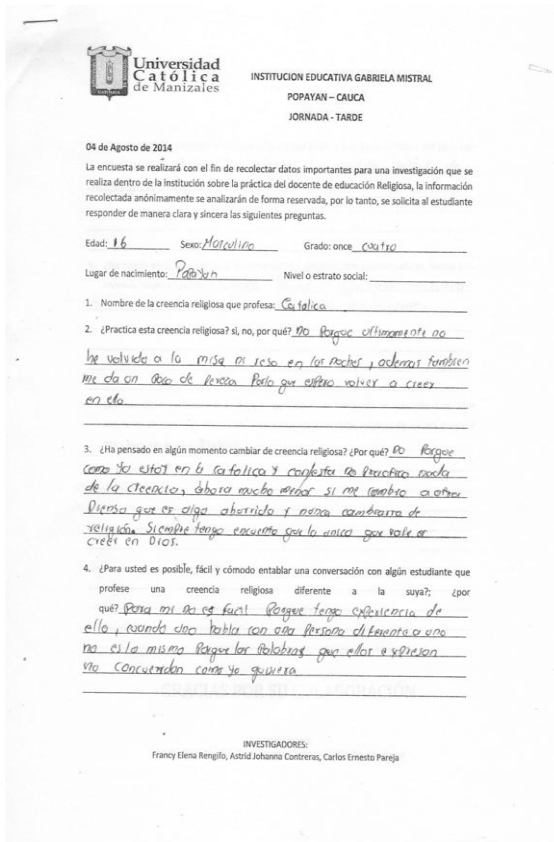 Universidad
Católica
de Manizales
INSTITUCION EDUCATIVA GABRIELA MISTRAL
POPAYAN – CAUCA
JORNADA - TARDE
04 de Agosto de 2014
La encuesta se realizará con el fin de recolectar datos importantes para una investigación que se
realiza dentro de la institución sobre la práctica del docente de educación Religiosa, la información
recolectada anónimamente se analizarán de forma reservada, por lo tanto, se solicita al estudiante
responder de manera clara y sincera las siguientes preguntas.
Edad: 16 Sexo: Masculino Grado: once cuatro
Lugar de nacimiento: Popayan Nivel o estrato social:
1. Nombre de la creencia religiosa que profesa: Catolica
2. ¿Practica esta creencia religiosa? si, no, por qué? no Porque ultimamente no
he volvido a la misa ni reso en las noches, ademas tambien
me da un poco de pereza Porlo que espero volver a creer
en ello
3. ¿Ha pensado en algún momento cambiar de creencia religiosa? ¿Por qué? no Porque
como yo estoy en la catolica y con esta no practico nada
de la creencia, ahora mucho menor si me cambio a otra
Pienso que es algo aburrido y nunca cambiarra de
religión. Siempre tengo encuenta que lo unico que vale es
creer en Dios.
4. ¿Para usted es posible, fácil y cómodo entablar una conversación con algún estudiante que
profese una creencia religiosa diferente a la suya?; ¿por
qué? Para mi no es facil Porque tengo experiencia de
ello, cuando uno habla con una persona diferente a uno
no es lo mismo Porque las Palabras que ellos expresan
no concuerdan como yo quisiera
INVESTIGADORES:
Francy Elena Rengifo, Astrid Johanna Contreras, Carlos Ernesto Pareja